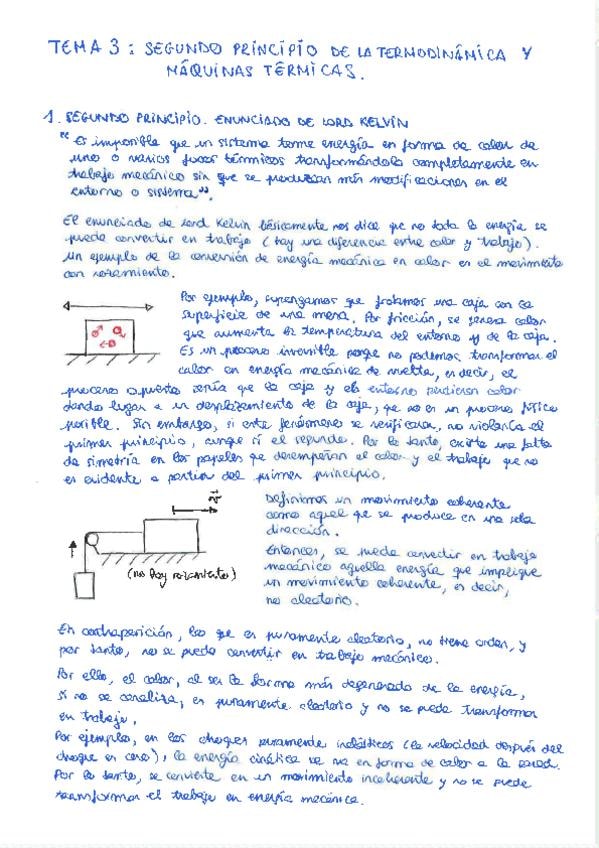 TEMA 3: SEGUNDO PRINCIPIO DE LA TERMODINÁMICA Y
MÁQUINAS TÉRMICAS.
1. SEGUNDO PRINCIPIO. ENUNCIADO DE LORD KELVIN
"Es imposible que un sistema tome energía en forma de calor de
uno o varios focos térmicos transformándola completamente en
trabajo mecánico sin que se produzcan más modificaciones en el
entorno o sistema".
El enunciado de Lord Kelvin básicamente nos dice que no toda la energía se
puede convertir en trabajo (hay una diferencia entre calor y trabajo).
Un ejemplo de la conversión de energía mecánica en calor es el movimiento
con rozamiento.
Por ejemplo, supongamos que frotamos una caja con la
superficie de una mesa. Por fricción, se genera calor
que aumenta la temperatura del entorno y de la caja.
Es un proceso invisible porque no podemos transformar el
calor en energía mecánica de vuelta, es decir, el
proceso opuesto sería que la caja y el entorno perdieran calor
dando lugar a un desplazamiento de la caja, que no es un proceso físico
posible. Sin embargo, si este fenómeno se verificara, no violaría el
primer principio, aunque sí el segundo. Por lo tanto, existe una falta
de simetría en los papeles que desempeñan el calor y el trabajo que no
es evidente a partir del primer principio.
Definimos un movimiento coherente
como aquel que se produce en una sola
dirección.
Entonces, se puede convertir en trabajo
mecánico aquella energía que implique
un movimiento coherente, es decir,
no aleatorio.
v
(no hay rozamiento)
En contraparición, lo que es puramente aleatorio, no tiene orden, y
por tanto, no se puede convertir en trabajo mecánico.
Por ello, el calor, al ser la forma más degenerada de la energía,
si no se canaliza, es puramente aleatorio y no se puede transformar
en trabajo.
Por ejemplo, en los choques puramente inelásticos (la velocidad después del
choque es cero), la energía cinética se va en forma de calor a la pared.
Por lo tanto, se convierte en un movimiento incoherente y no se puede
transformar el trabajo en energía mecánica.